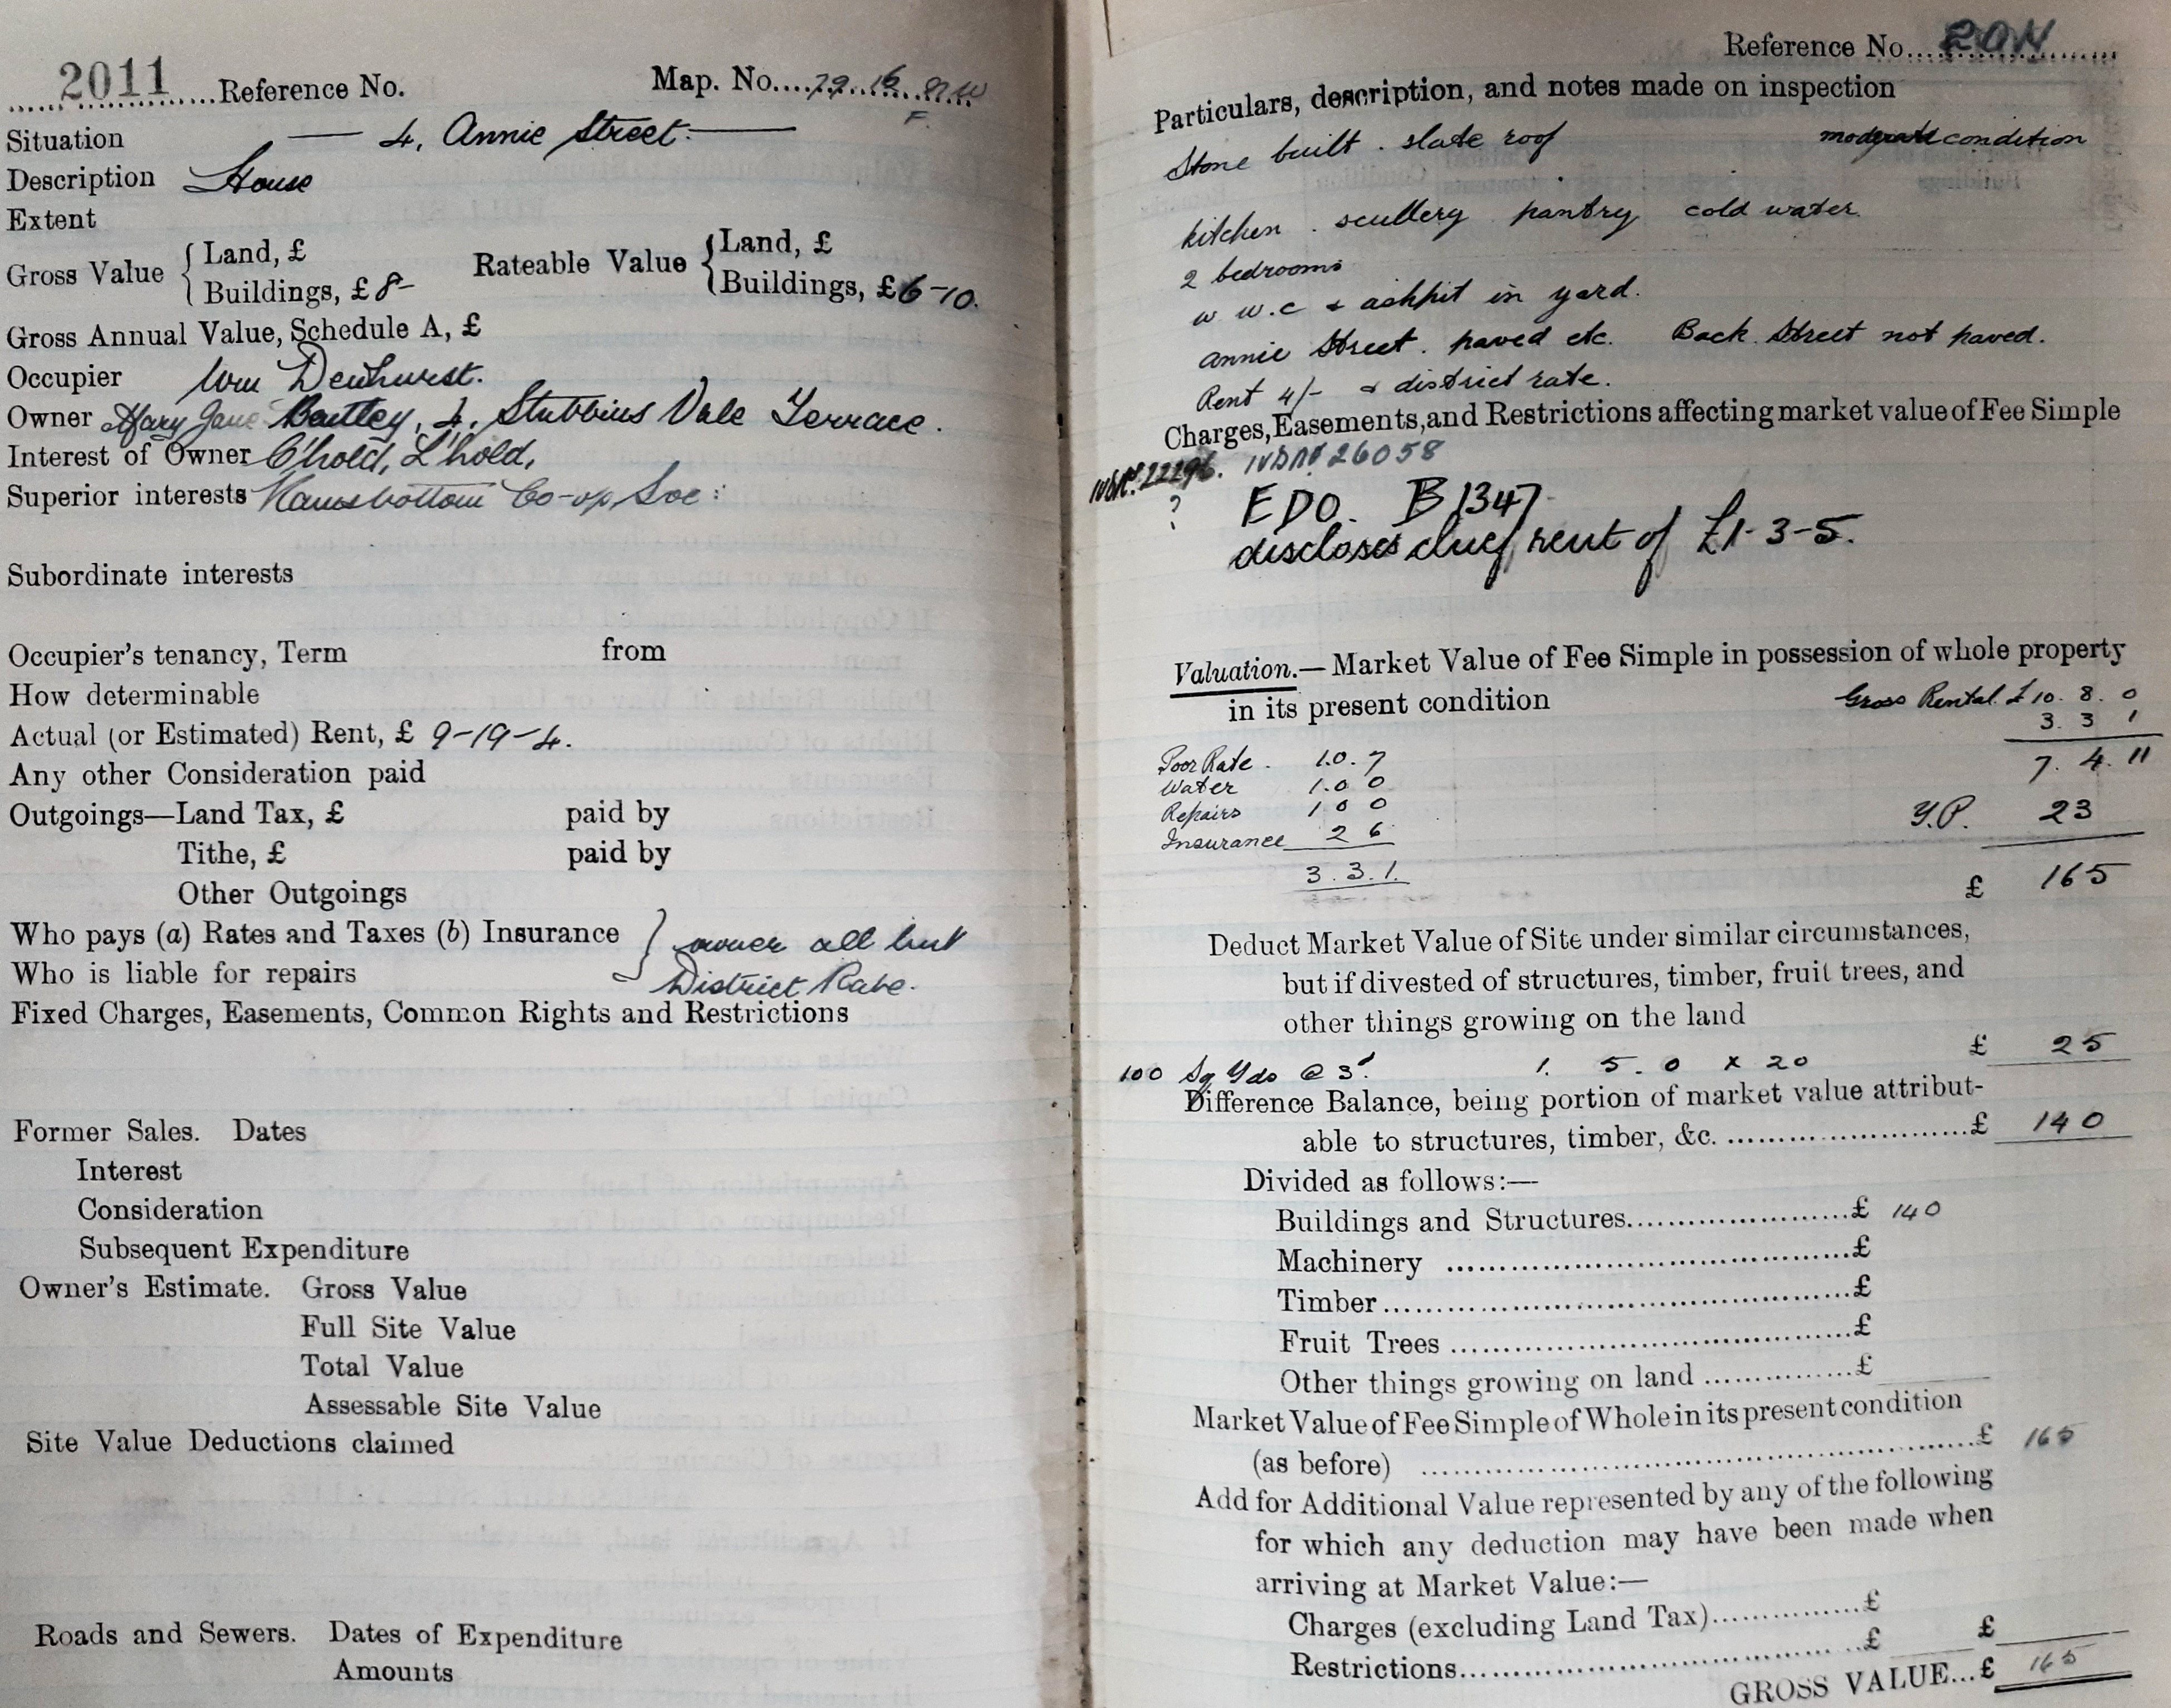 2011 Reference No. Map. No. 79. 16. NW
F.
Situation — 4, Annie Street. —
Description House
Extent
Gross Value { Land, £
Buildings, £ 8-
Rateable Value { Land, £
Buildings, £ 6-10.
Gross Annual Value, Schedule A, £
Occupier Wm Dewhurst.
Owner Mary Jane Bentley, 4, Stubbins Vale Terrace.
Interest of Owner C'hold, L'hold,
Superior interests Ramsbottom Co-op, Soc:
Subordinate interests
Occupier's tenancy, Term from
How determinable
Actual (or Estimated) Rent, £ 9-19-4.
Any other Consideration paid
Outgoings—Land Tax, £ paid by
Tithe, £ paid by
Other Outgoings
Who pays (a) Rates and Taxes (b) Insurance } owner all but
Who is liable for repairs District Rate.
Fixed Charges, Easements, Common Rights and Restrictions
Former Sales. Dates
Interest
Consideration
Subsequent Expenditure
Owner's Estimate. Gross Value
Full Site Value
Total Value
Assessable Site Value
Site Value Deductions claimed
Roads and Sewers. Dates of Expenditure
Amounts
Reference No. 2011
Particulars, description, and notes made on inspection
Stone built. slate roof moderate condition
kitchen. scullery pantry cold water.
2 bedrooms
w w.c & ashpit in yard.
Annie Street. paved etc. Back Street not paved.
Rent 4/- & district rate.
Charges, Easements, and Restrictions affecting market value of Fee Simple
IVDNo 22296. IVDNo 26058
? EDO. B 1347
discloses chief rent of £1-3-5.
Valuation.—Market Value of Fee Simple in possession of whole property
in its present condition Gross Rental £ 10. 8. 0
3. 3 1
7. 4. 11
Poor Rate. 1.0.7
Water 1.0 0
Repairs 1 0 0
Insurance 2 6
3. 3. 1.
Y.P. 23
£ 165
Deduct Market Value of Site under similar circumstances,
but if divested of structures, timber, fruit trees, and
other things growing on the land
£ 25
100 Sq Yds @ 3d 1. 5. 0 x 20
Difference Balance, being portion of market value attribut-
able to structures, timber, &c. £ 140
Divided as follows:—
Buildings and Structures £ 140
Machinery £
Timber £
Fruit Trees £
Other things growing on land £
Market Value of Fee Simple of Whole in its present condition
(as before) £ 165
Add for Additional Value represented by any of the following
for which any deduction may have been made when
arriving at Market Value:—
Charges (excluding Land Tax) £
Restrictions £ £
GROSS VALUE...£ 165